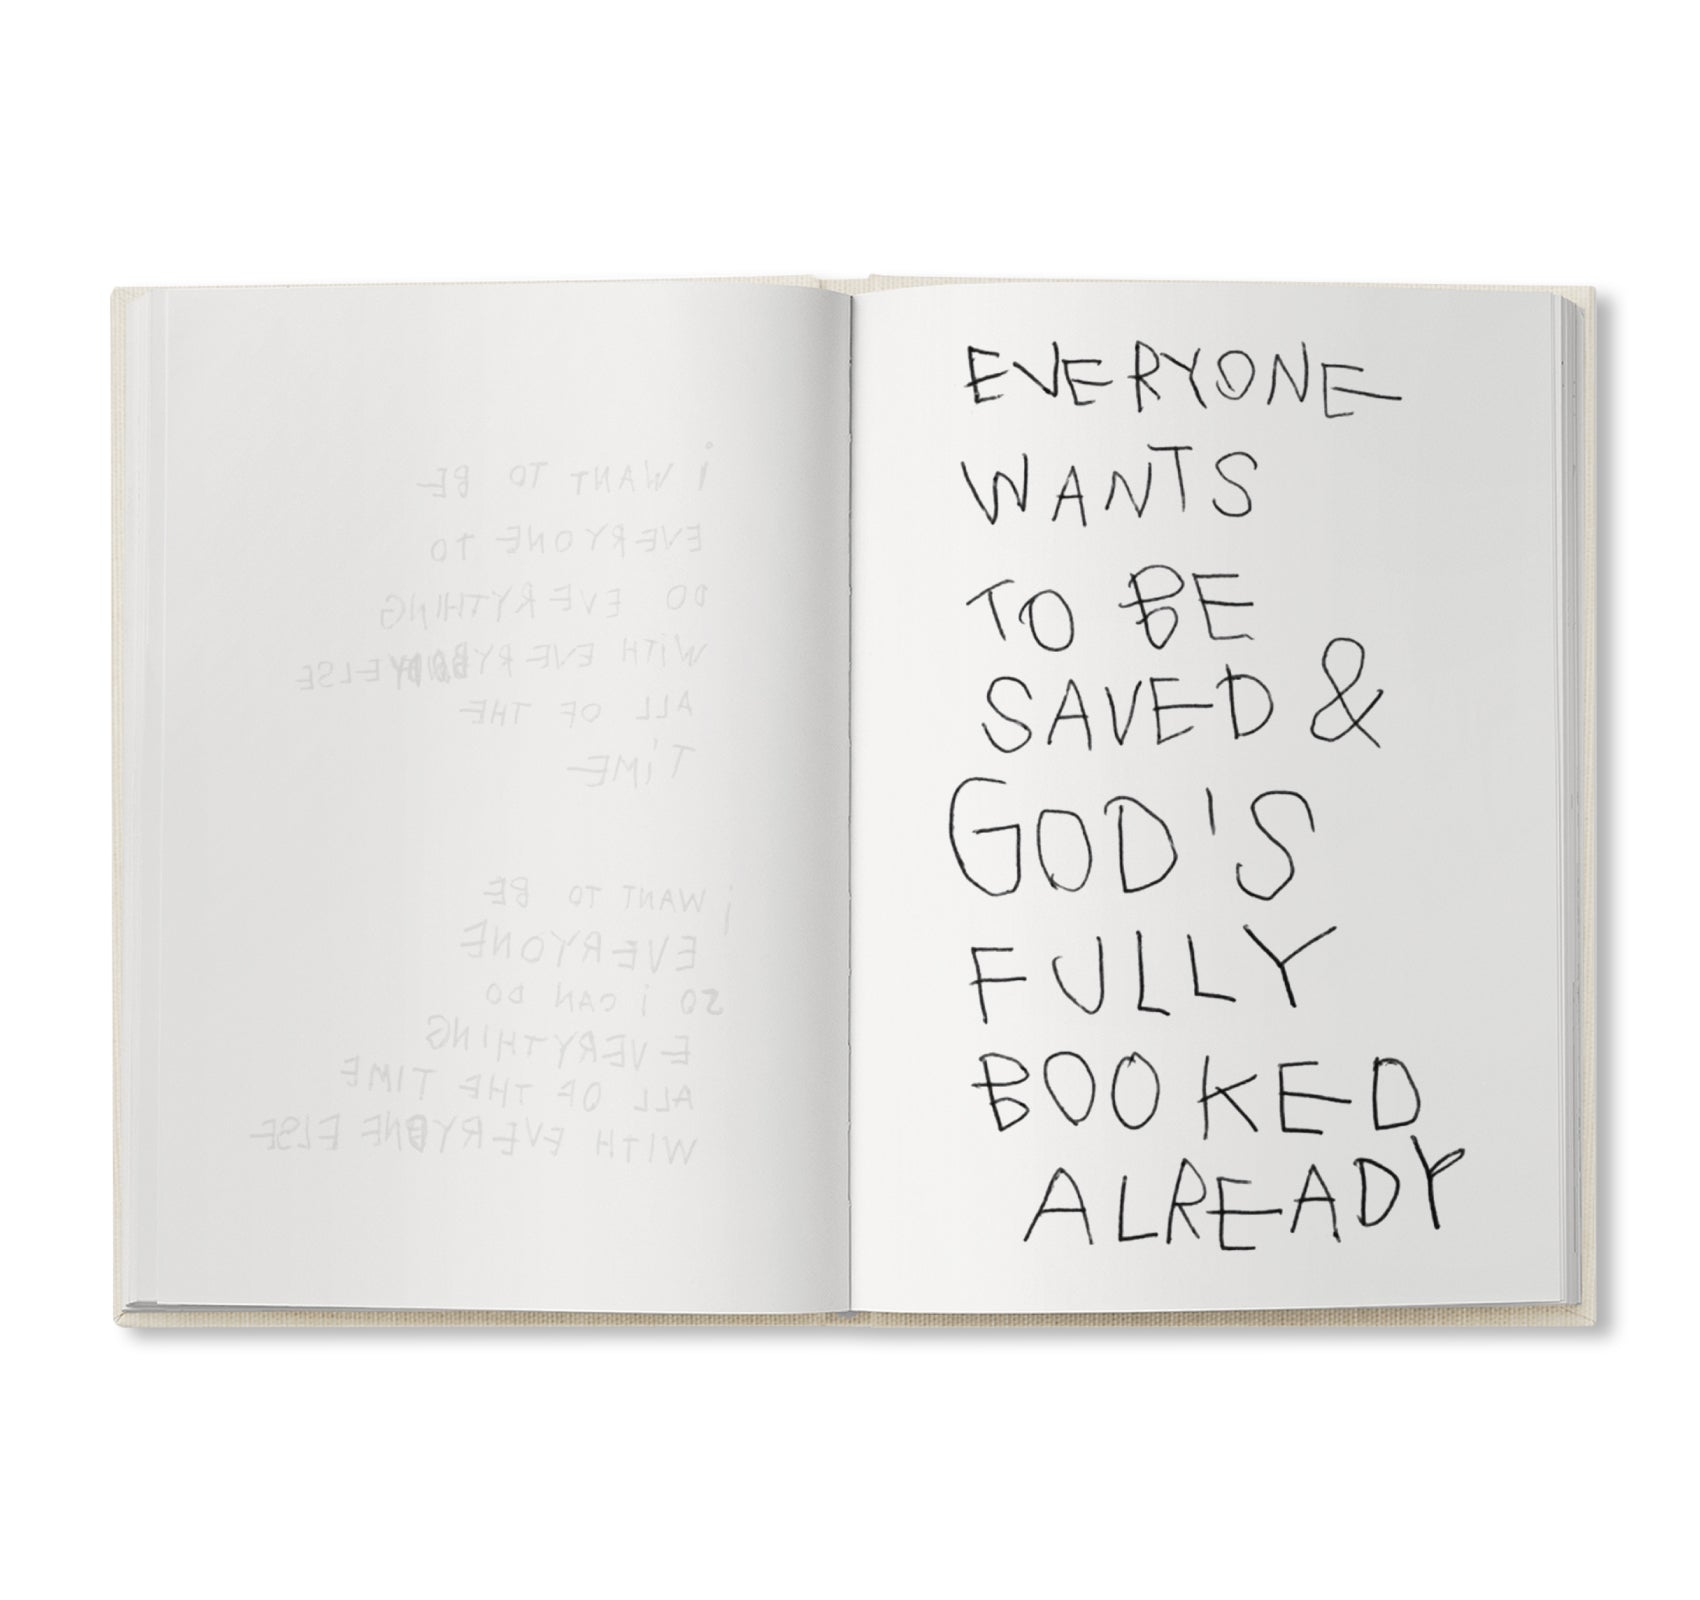 i WANT TO BE
EVERYONE TO
DO EVERYTHING
WITH EVERYBODY ELSE
ALL OF THE
TiME
i WANT TO BE
EVERYONE
SO i CAN DO
EVERYTHING
ALL OF THE TIME
WITH EVERYONE ELSE
EVERYONE
WANTS
TO BE
SAVED &
GOD'S
FULLY
BOOKED
ALREADY